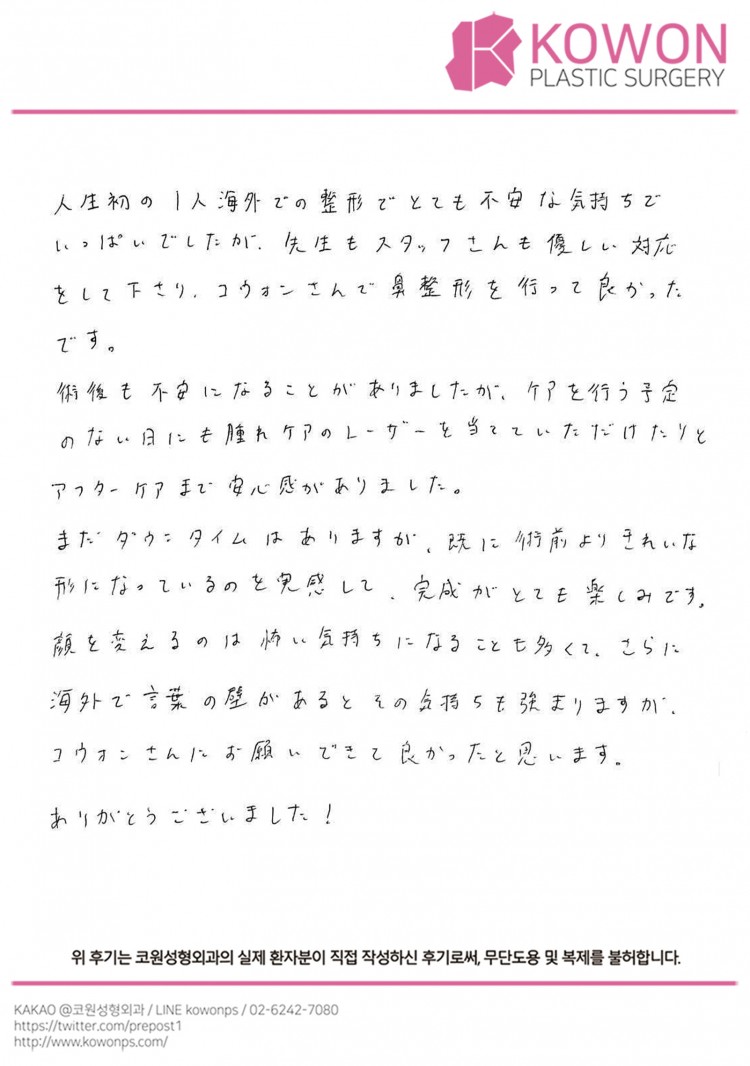 KOWON
PLASTIC SURGERY
人生初の1人海外での整形でとても不安な気持ちで
いっぱいでしたが、先生もスタッフさんも優しい対応
をして下さり、コウォンさんで鼻整形を行って良かった
です。
術後も不安になることがありましたが、ケアを行う予定
のない日にも腫れケアのレーザーを当てていただけたりと
アフターケアまで安心感がありました。
まだダウンタイムはありますが、既に術前よりきれいな
形になっているのを実感して、完成がとても楽しみです。
顔を変えるのは怖い気持ちになることも多くて、さらに
海外で言葉の壁があるとその気持ちも強まりますが、
コウォンさんにお願いできて良かったと思います。
ありがとうございました!
위 후기는 코원성형외과의 실제 환자분이 직접 작성하신 후기로써, 무단도용 및 복제를 불허합니다.
KAKAO @코원성형외과 / LINE kowonps / 02-6242-7080
https://twitter.com/prepost1
http://www.kowonps.com/